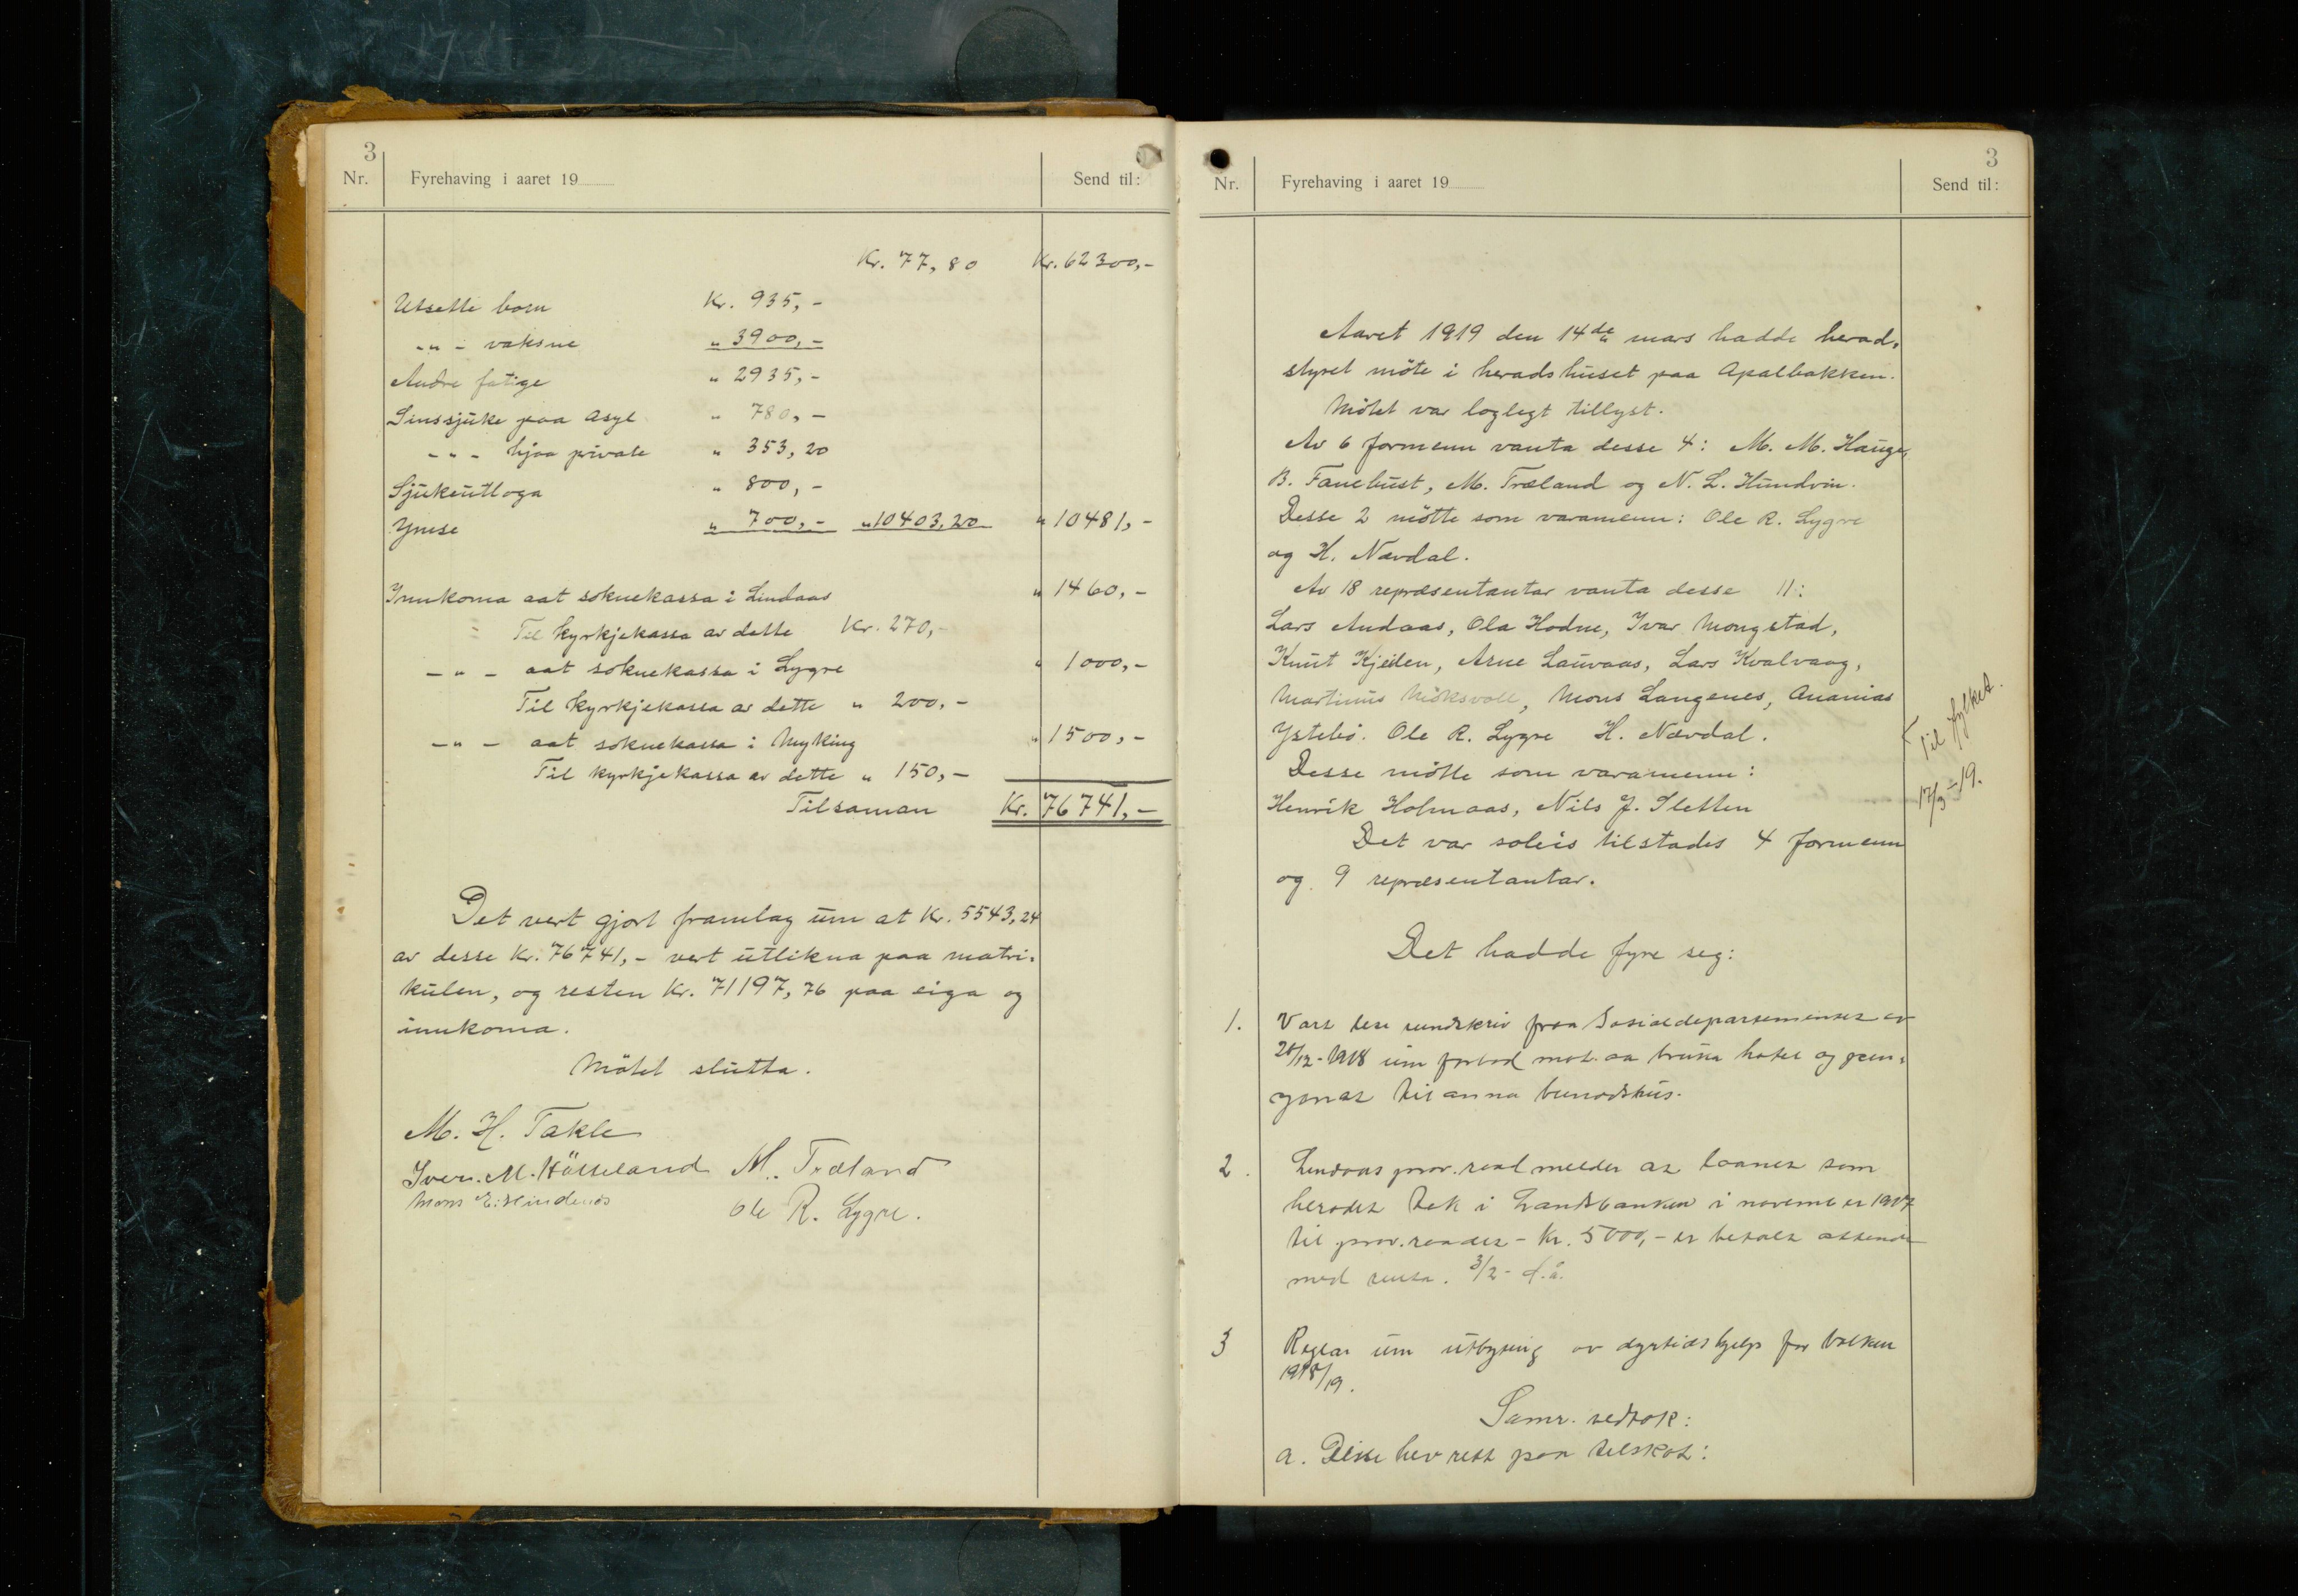 3
Nr. Fyrehaving i aaret 19 Send til:
Kr. 77,80 Kr. 62300,-
Utsette born Kr. 935,-
-"- vaksne " 3900,-
Andre fatige " 2935,-
Sinssjuke paa asyl " 780,-
-"- hjaa private " 353,20
Sjukeutloga " 800,-
Ymse " 700,- " 10403,20 " 10481,-
Innkoma aat soknekassa i Lindaas " 1460,-
Til kyrkjekassa av dette Kr. 270,-
-"- aat soknekassa i Lygre " 1000,-
Til kyrkjekassa av dette " 200,-
-"- aat soknekassa i Myking " 1500,-
Til kyrkjekassa av dette " 150,-
Tilsaman Kr. 76741,-
Det vert gjort framlag um at Kr. 5543,24
av desse Kr. 76741,- vert utlikna paa matri-
kulen, og resten Kr. 71197,76 paa eiga og
innkoma.
Mötet slutta.
M. H. Takle
Iver. M. Hölleland M. Træland
Mons E. Hindenes Ole R. Lygre.
3
Nr. Fyrehaving i aaret 19 Send til:
Aaret 1919 den 14de mars hadde herad-
styret möte i heradshuset paa Apalbakken.
Mötet var loglegt tillyst.
Av 6 formenn vanta desse 4: M. M. Hauge,
B. Fanebust, M. Træland og N. L. Hundvin.
Desse 2 mötte som varamenn: Ole R. Lygre
og H. Nævdal.
Av 18 repræsentantar vanta desse 11:
Lars Andaas, Ola Hodne, Ivar Mongstad,
Knut Kjeilen, Arne Lauvaas, Lars Kvalvaag,
Martinus Möksvoll, Mons Langenes, Ananias
Ystebö. Ole R. Lygre H. Nævdal.
Desse mötte som varamenn:
Henrik Holmaas, Nils J. Sletten
Det var soleis tilstades 4 formenn
og 9 repræsentantar.
Til fylket.
17/3-19.
Det hadde fyre seg:
1. Vart lese rundskriv fraa Sosialdepartementet av
20/12-1918 um forbod mot aa bruka hotel og pen-
sjonat til anna bunadshus.
2. Lindaas prov.raad melder at laanet som
heradet tok i Landsbanken i november 1917
til prov.raadet - Kr. 5000,- er betalt attende
med renta. 3/2 - d.å.
3 Reglar um utbyting av dyrtidshjelp for bolken
1918/19.
Samr. vedtok:
a. Disse hev rett paa tilskot: